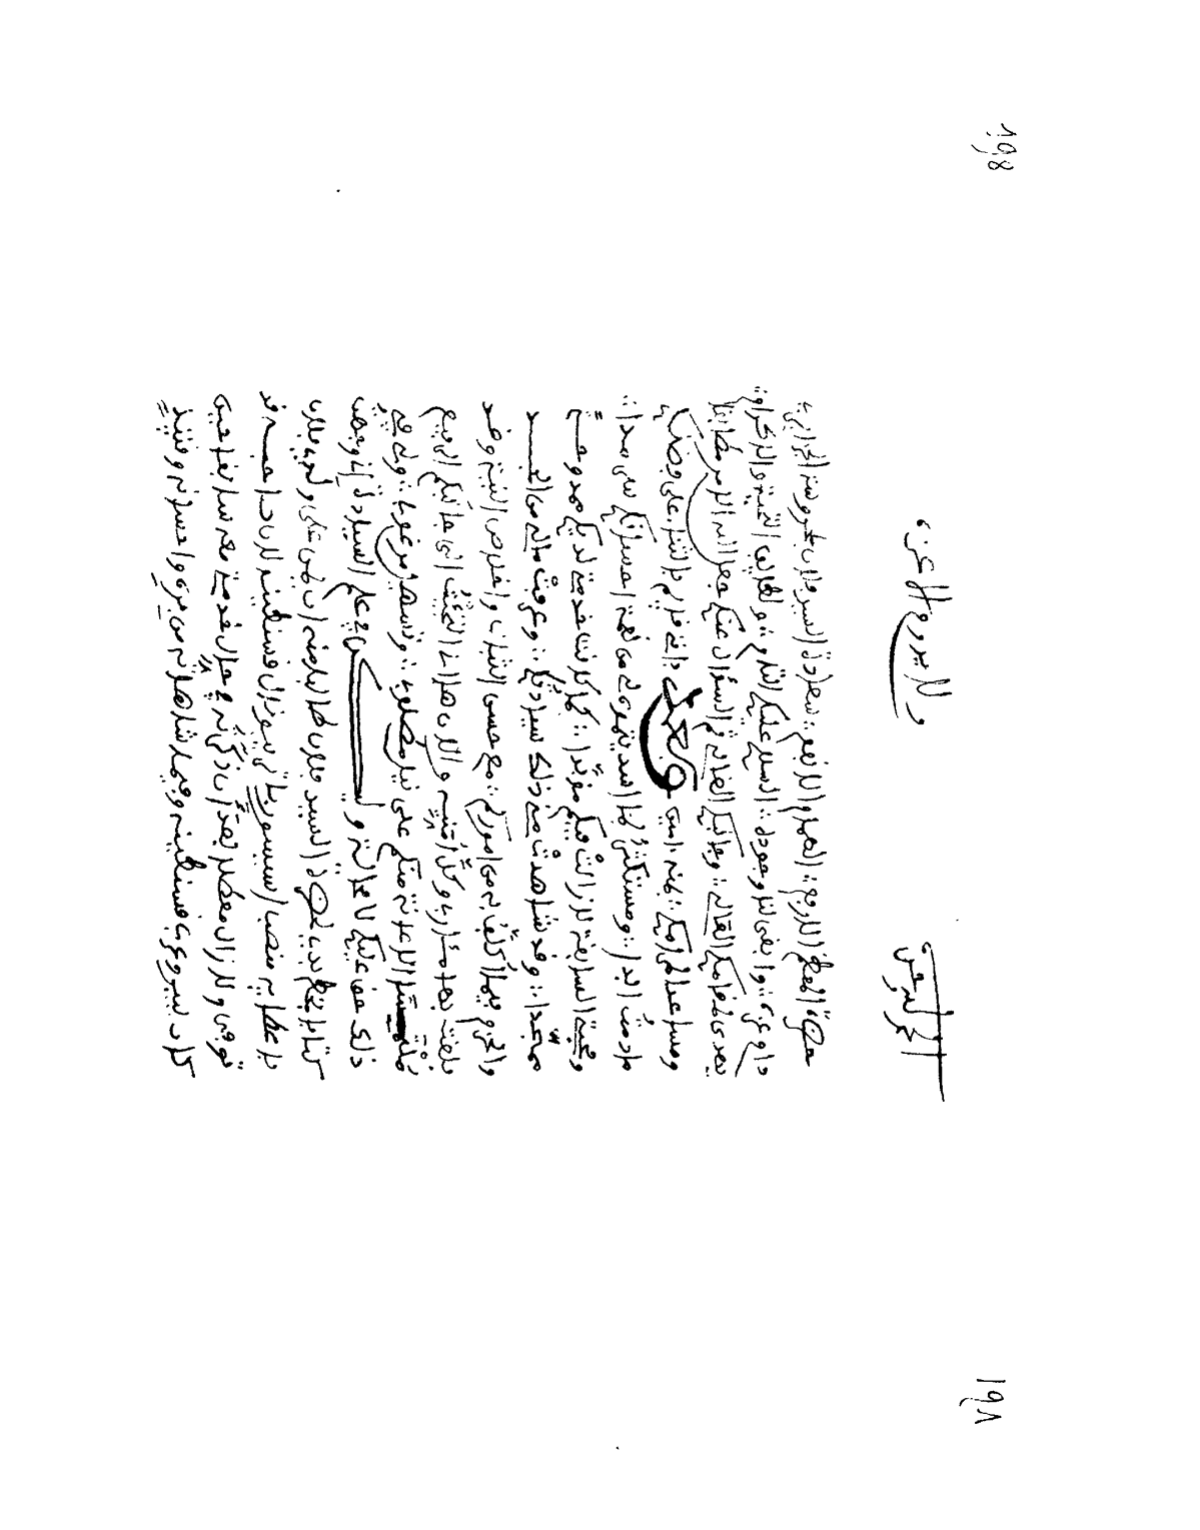 198
الحمد لله وحده
ولا يدوم إلا عزه
حضرة المعظم الارفع، الهمام الانفع، سعادة السيد فلان بمحروسة الجزاير،
دام عزه، وابقى لنا وجوده، السلام عليكم التام، ولطايف التحية والاكرام،
يعمكم القالة، ويوافيكم الحالة، ثم السؤال عنكم جعل الله الامر مطابقا
ومساعدا لما فيكم، بمنه امين، وبعد فانى قدايم بالثناء على فضلكم
مادمت ابدا، ومستكثر بما اسديتموه لى من نعمة احسانكم سرمدا،
ومحبتى السابقة لازالت فيكم مؤبدا، كما كانت خدمتى لديكم ممدوحة
ممجدا، وقد شاهدت من ذلك سيادتكم، وعرفت مالى من الجد
والحزم فيما اكلف به من اموركم، مع حسن الثبات واخلاص النية وقد
بلغت بها مئارب وكل امنية، والان هزنى التخفيف الى جانبكم الرفيع
ملتمسا الاعانة منكم على نيل مطلوب، وتسهيل مرغوب، ولى في
ذلك حق عليكم لا محالة، وليكن في علم السيادة اني وجهت
كتابا يتصل بيد حضرة السيد فلان طالبا منه ان يمن على ولدي فلان
باعطايه منصبا بسبيل قسنطينة لان صاحبه قد
توفى ولازال معطلا بعد ان ذكرته في حال خدمتى معه سابقا حين
كان بيرو عرب قسنطينة وفيما شاهدته من بره واحسانه وقتيذ
١٩٨